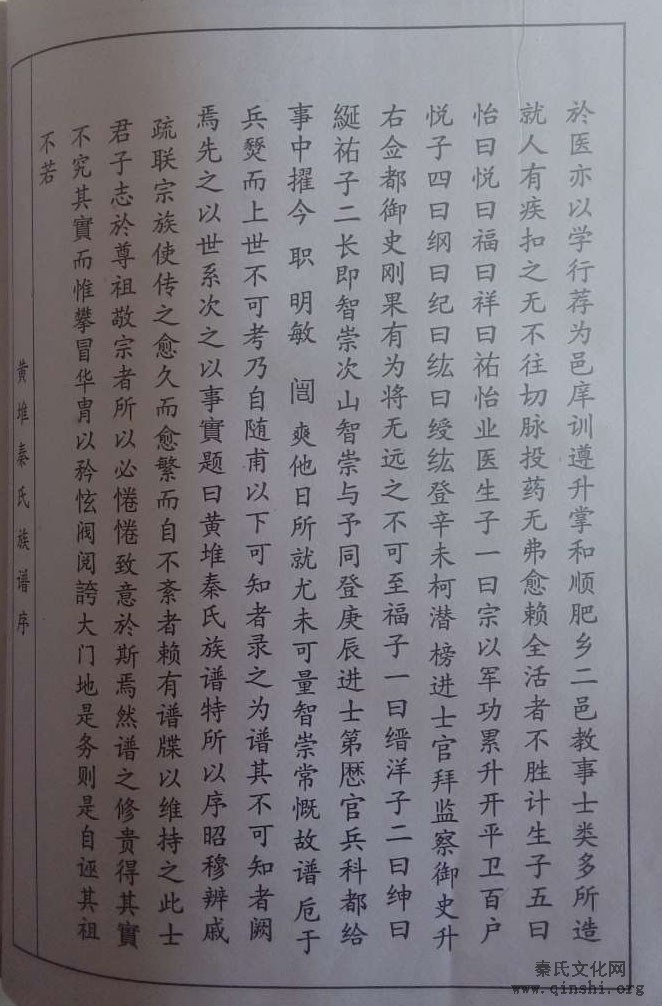 於医亦以学行荐为邑庠训遵升掌和顺肥乡二邑教事士类多所造
就人有疾扣之无不往切脉投药无弗愈赖全活者不胜计生子五曰
怡曰悦曰福曰祥曰祐怡业医生子一曰宗以军功累升开平卫百户
悦子四曰纲曰纪曰纮曰绶纮登辛未柯潜榜进士官拜监察御史升
右佥都御史刚果有为将无远之不可至福子一曰缙洋子二曰绅曰
綖祐子二长即智崇次山智崇与予同登庚辰进士第歷官兵科都给
事中擢今 职 明敏 闿 爽他日所就尤未可量智崇常慨故谱卮于
兵燹而上世不可考乃自随甫以下可知者录之为谱其不可知者阙
焉先之以世系次之以事實题曰黄堆秦氏族谱特所以序昭穆辨戚
疏联宗族使传之愈久而愈繁而自不紊者赖有谱牒以维持之此士
君子志於尊祖敬宗者所以必惓惓致意於斯焉然谱之修贵得其實
不究其實而惟攀冒华胄以矜怰阀阅誇大门地是务则是自诬其祖
不若
黄堆秦氏族谱序
秦氏文化网
www.qinshi.org